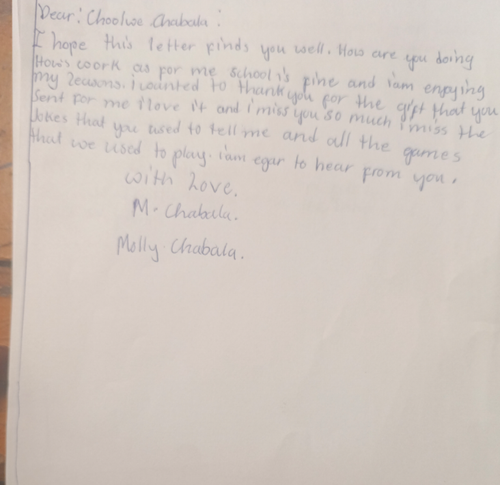 Dear: Choolwe Chabala:
I hope this letter finds you well. How are you doing
Hows work as for me school is fine and iam enjoying
my leasons. i wanted to thank you for the gift that you
Sent for me i love it and i miss you so much i miss the
Jokes that you used to tell me and all the games
that we used to play. iam egar to hear from you.
with Love.
M. Chabala.
Molly. Chabala.